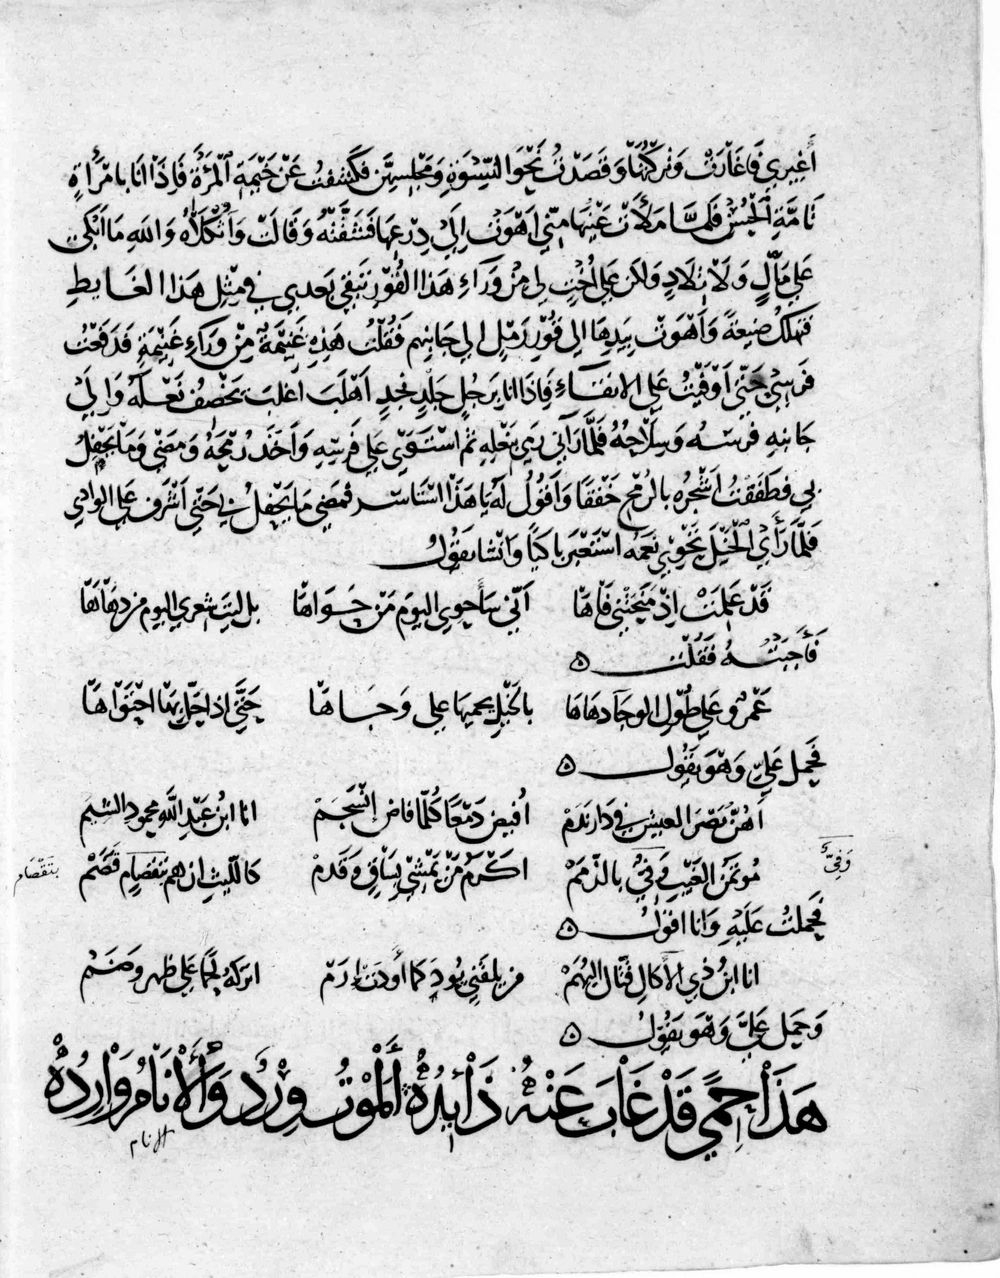 أغيري فاغارت وتركتها وقصدت نحو النسوة ومجلسهن فكشفت عن خيمة المرأة فاذا انا بامرأة
تامة الحسن فلما ملأت عينها مني اهوت الي درعها فشقته وقالت واثكلاه والله ما ابكي
علي مال ولا تلاد ولكن علي اخت لي من وراء هذا القوز تبقي بعدي في مثل هذا الغايط
فتهلك ضيعة واهوت بيدها الي قوز رمل الي جانبهم فقلت هذه غنيمة من وراء غنيمة فدفعت
فرسي حتي اوفيت علي الانقاء فاذا انا برجل جلد نجد اهلب اغلب يخصف نعله والي
جانبه فرسه وسلاحه فلما رآني رمي بنعله ثم استوي علي فرسه واخذ رمحه ومضي وما يحفل
بي فطفقت اشجره بالرمح خفقا واقول له يا هذا استاسر فمضي ما يحفل بي حتي اشرف علي الوادي
فلما رأي الخيل تحوي نعمه استعبر باكيا وانشا يقول
قد علمت اذ منحتني فاها اني سأحوي اليوم من حواها بل ليت شعري اليوم من دهاها
فأجبته فقلت ۵
عمرو علي طول الوجا دهاها بالخيل يحميها علي وجاها حتي اذا حل بها احتواها
فحمل علي وهو يقول ۵
أهون بنصر العيش في دار ندم أفيض دمعا كلما فاض انسجم انا ابن عبد الله محمود الشيم
مؤتمن الغيب وفي بالذمم اكرم من يمشي بساق وقدم كالليث ان هم بتقصام قصم
وفي
بتقصام
فحملت عليه وانا اقول ۵
انا ابن ذي الاكال قتال البهم من يلقني يود كما أودت ارم اتركه لحما علي ظهر وضم
وحمل علي وهو يقول ۵
هذا حمي قد غاب عنه ذائده ألموت ورد والانام وارده
الانام